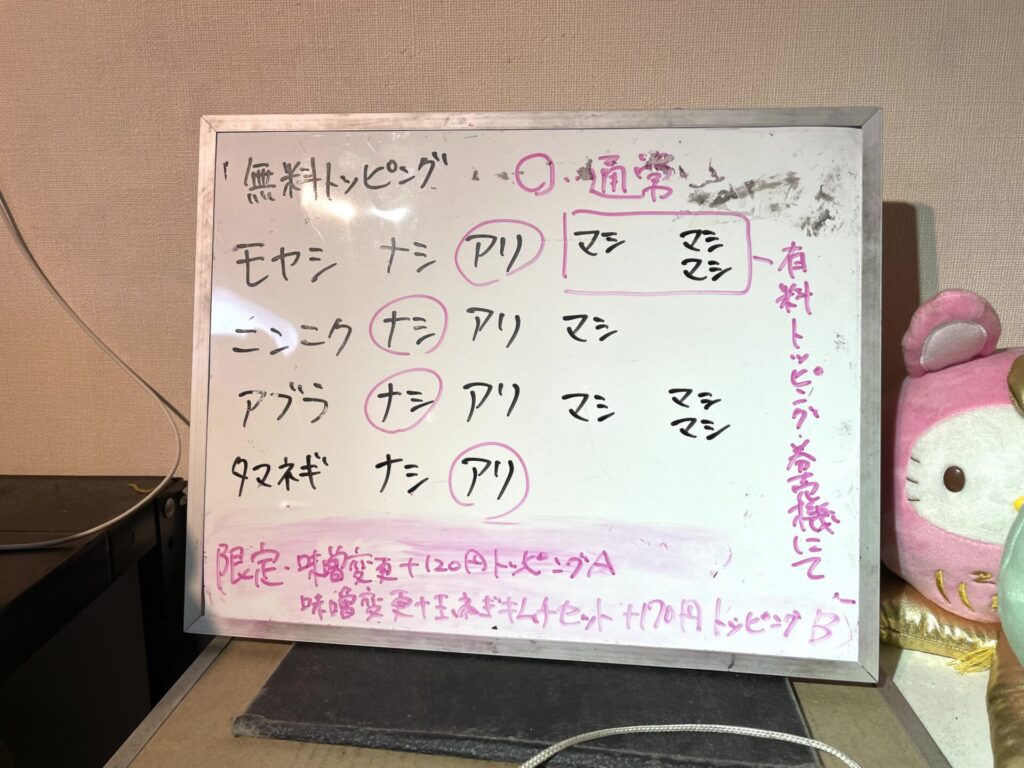 "無料トッピング" ○・通常
モヤシ ナシ アリ マシ マシマシ
ニンニク ナシ アリ マシ
アブラ ナシ アリ マシ マシマシ
タマネギ ナシ アリ
有料トッピング・券売機にて
限定・味噌変更+120円トッピングA
味噌変更+玉ネギキムチセット+170円トッピングB